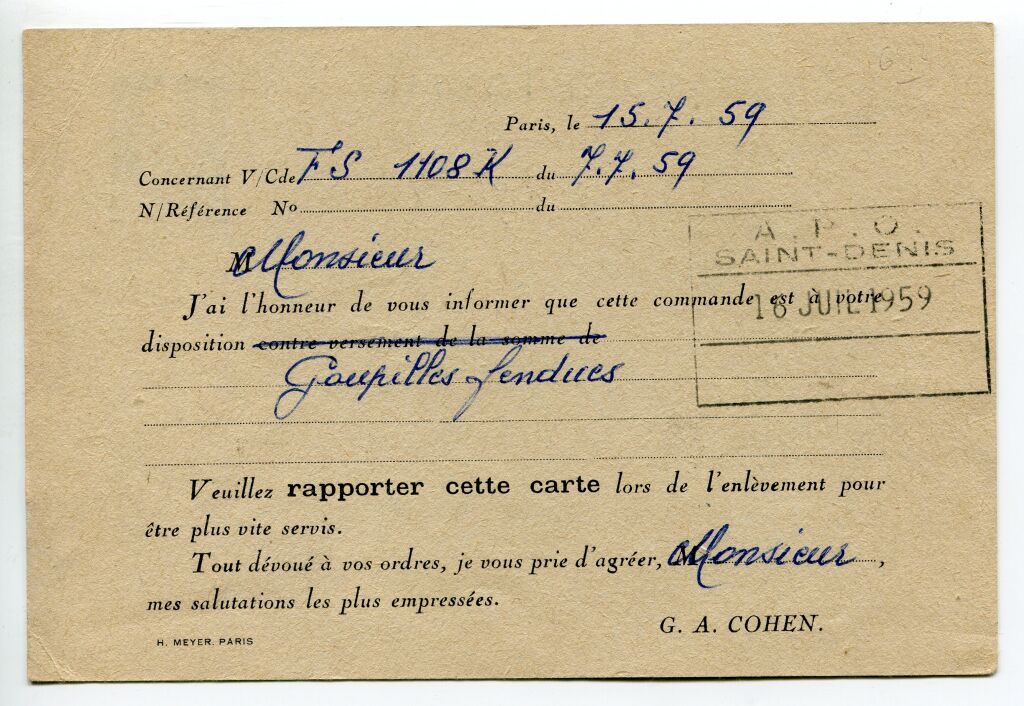 Paris, le 15.7.59
Concernant V/Cde FS 1108K du 7.7.59
N/Référence No du
A.P.O.
SAINT-DENIS
Monsieur
J'ai l'honneur de vous informer que cette commande est à votre
16 JUIL 1959
disposition contre versement de la somme de
Goupilles fendues
Veuillez rapporter cette carte lors de l'enlèvement pour
être plus vite servis.
Tout dévoué à vos ordres, je vous prie d'agréer, Monsieur,
mes salutations les plus empressées.
G. A. COHEN.
H. MEYER. PARIS